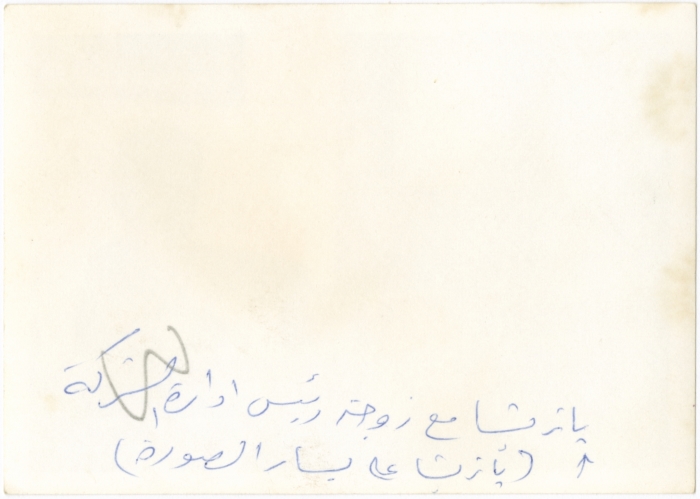 پاتريشا مع زوجة رئيس ادارة الشركة
(پاتريشا على يسار الصورة)